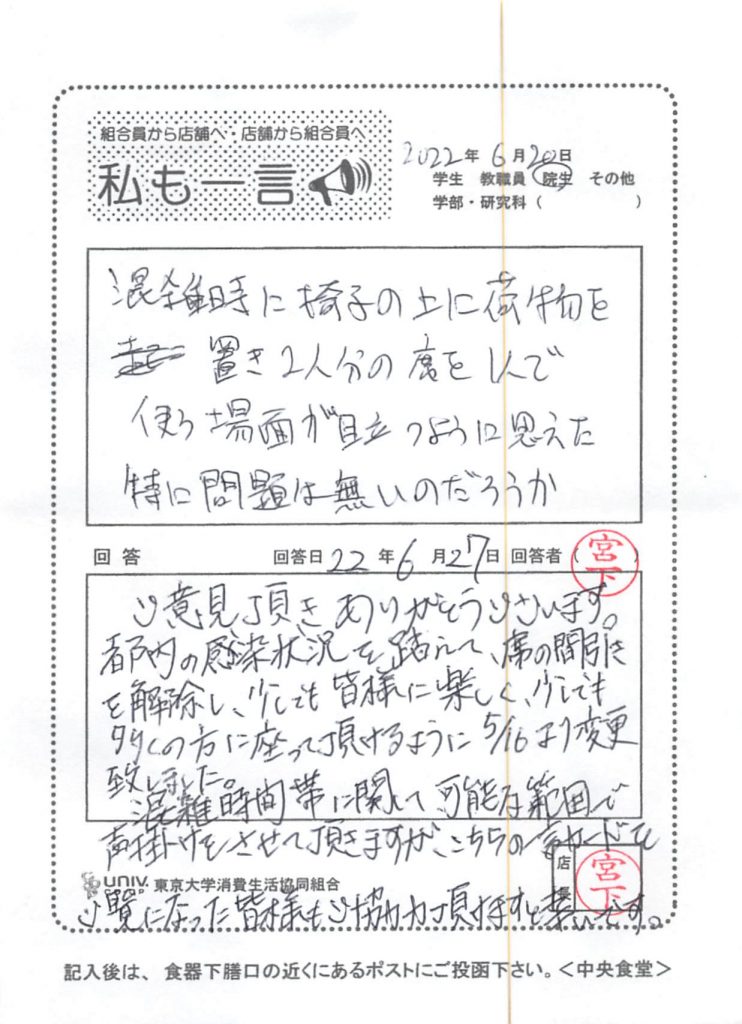 組合員から店舗へ・店舗から組合員へ
私も一言
2022年 6月20日
学生 教職員 院生 その他
学部・研究科( )
混雑時に椅子の上に荷物を
置き2人分の席を1人で
使う場面が目立つように思えた
特に問題は無いのだろうか
回答 回答日 22年6月27日 回答者( 宮下 )
ご意見頂きありがとうございます。
都内の感染状況を踏まえて、席の間引き
を解除し、少しでも皆様に楽しく、少しでも
多くの方に座って頂けるように5/16より変更
致しました。
混雑時間帯に関して可能な範囲で
声掛けをさせて頂きますが、こちらの一言カードを
univ. CO-OP 東京大学消費生活協同組合 店長 宮下
ご覧になった皆様もご協力頂けますと幸いです。
記入後は、食器下膳口の近くにあるポストにご投函下さい。<中央食堂>